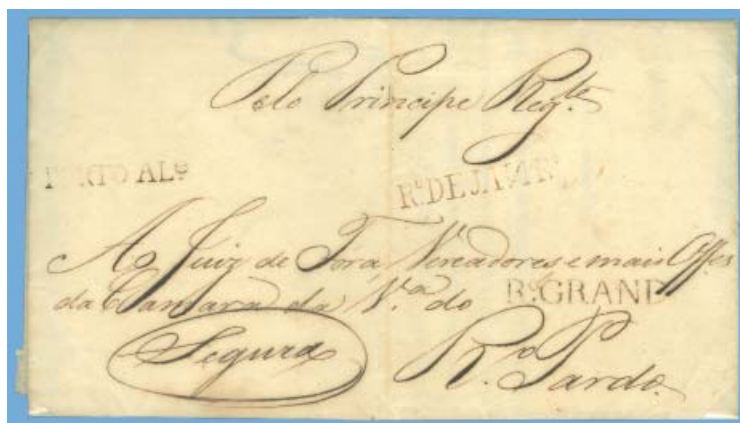 Pelo Principe Reg.te
PORTO ALe
Ro DE JANRo
Ao Juiz de Fora Vereadores e mais Offes
da Camara da V.a do
Ro GRANDE
Segura
R.o Pardo.